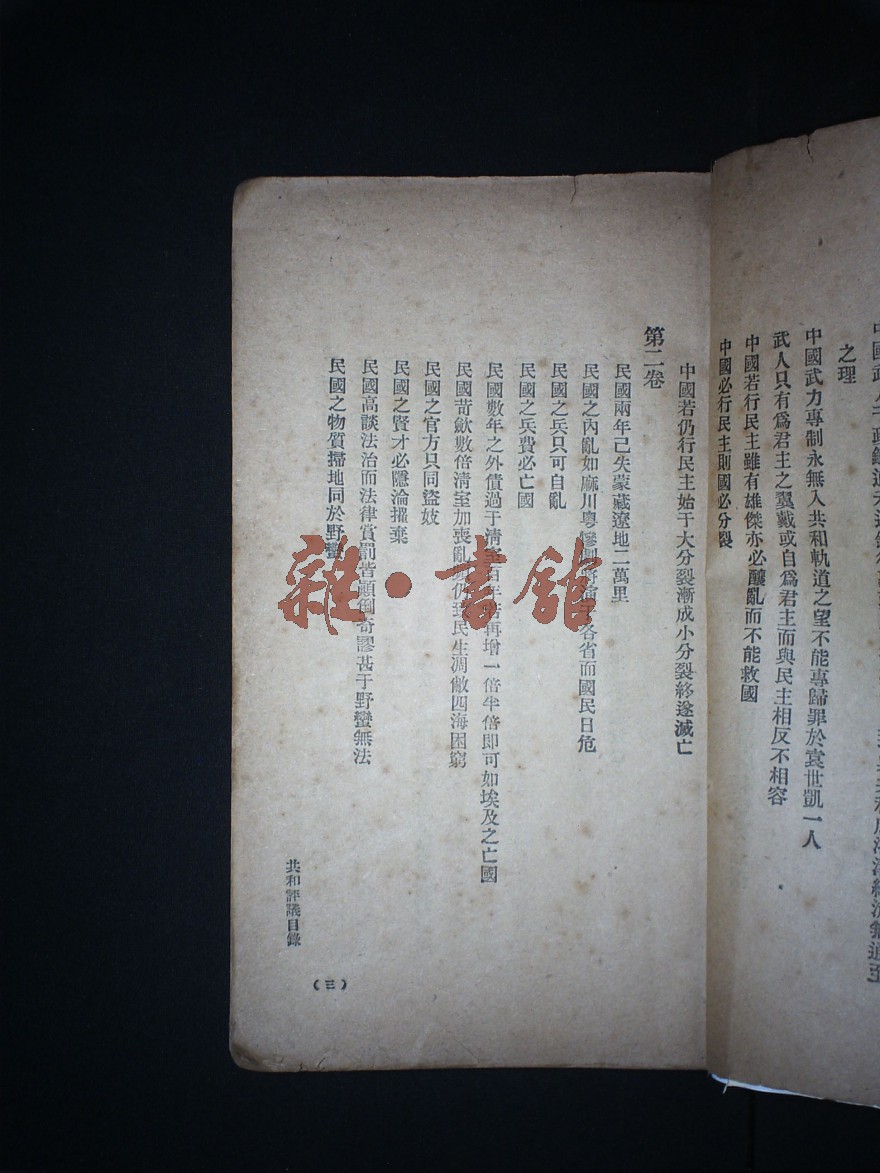 之理
中國武力專制永無入共和軌道之望不能專歸罪於袁世凱一人
武人只有爲君主之翼戴或自爲君主而與民主相反不相容
中國若行民主雖有雄傑亦必釀亂而不能救國
中國必行民主則國必分裂
中國若仍行民主始于大分裂漸成小分裂終遂滅亡
第二卷
民國兩年已失蒙藏遼地二萬里
民國之內亂如麻川粵慘劇將演于各省而國民日危
民國之兵只可自亂
民國之兵費必亡國
民國數年之外債過于清室百年若再增一倍半倍即可如埃及之亡國
民國苛歛數倍清室加喪亂頻仍致民生凋敝四海困窮
民國之官方只同盜妓
民國之賢才必隱淪擢棄
民國高談法治而法律賞罰皆顚倒奇謬甚于野蠻無法
民國之物質掃地同於野蠻
共和評議目錄
(三)
雜·書館